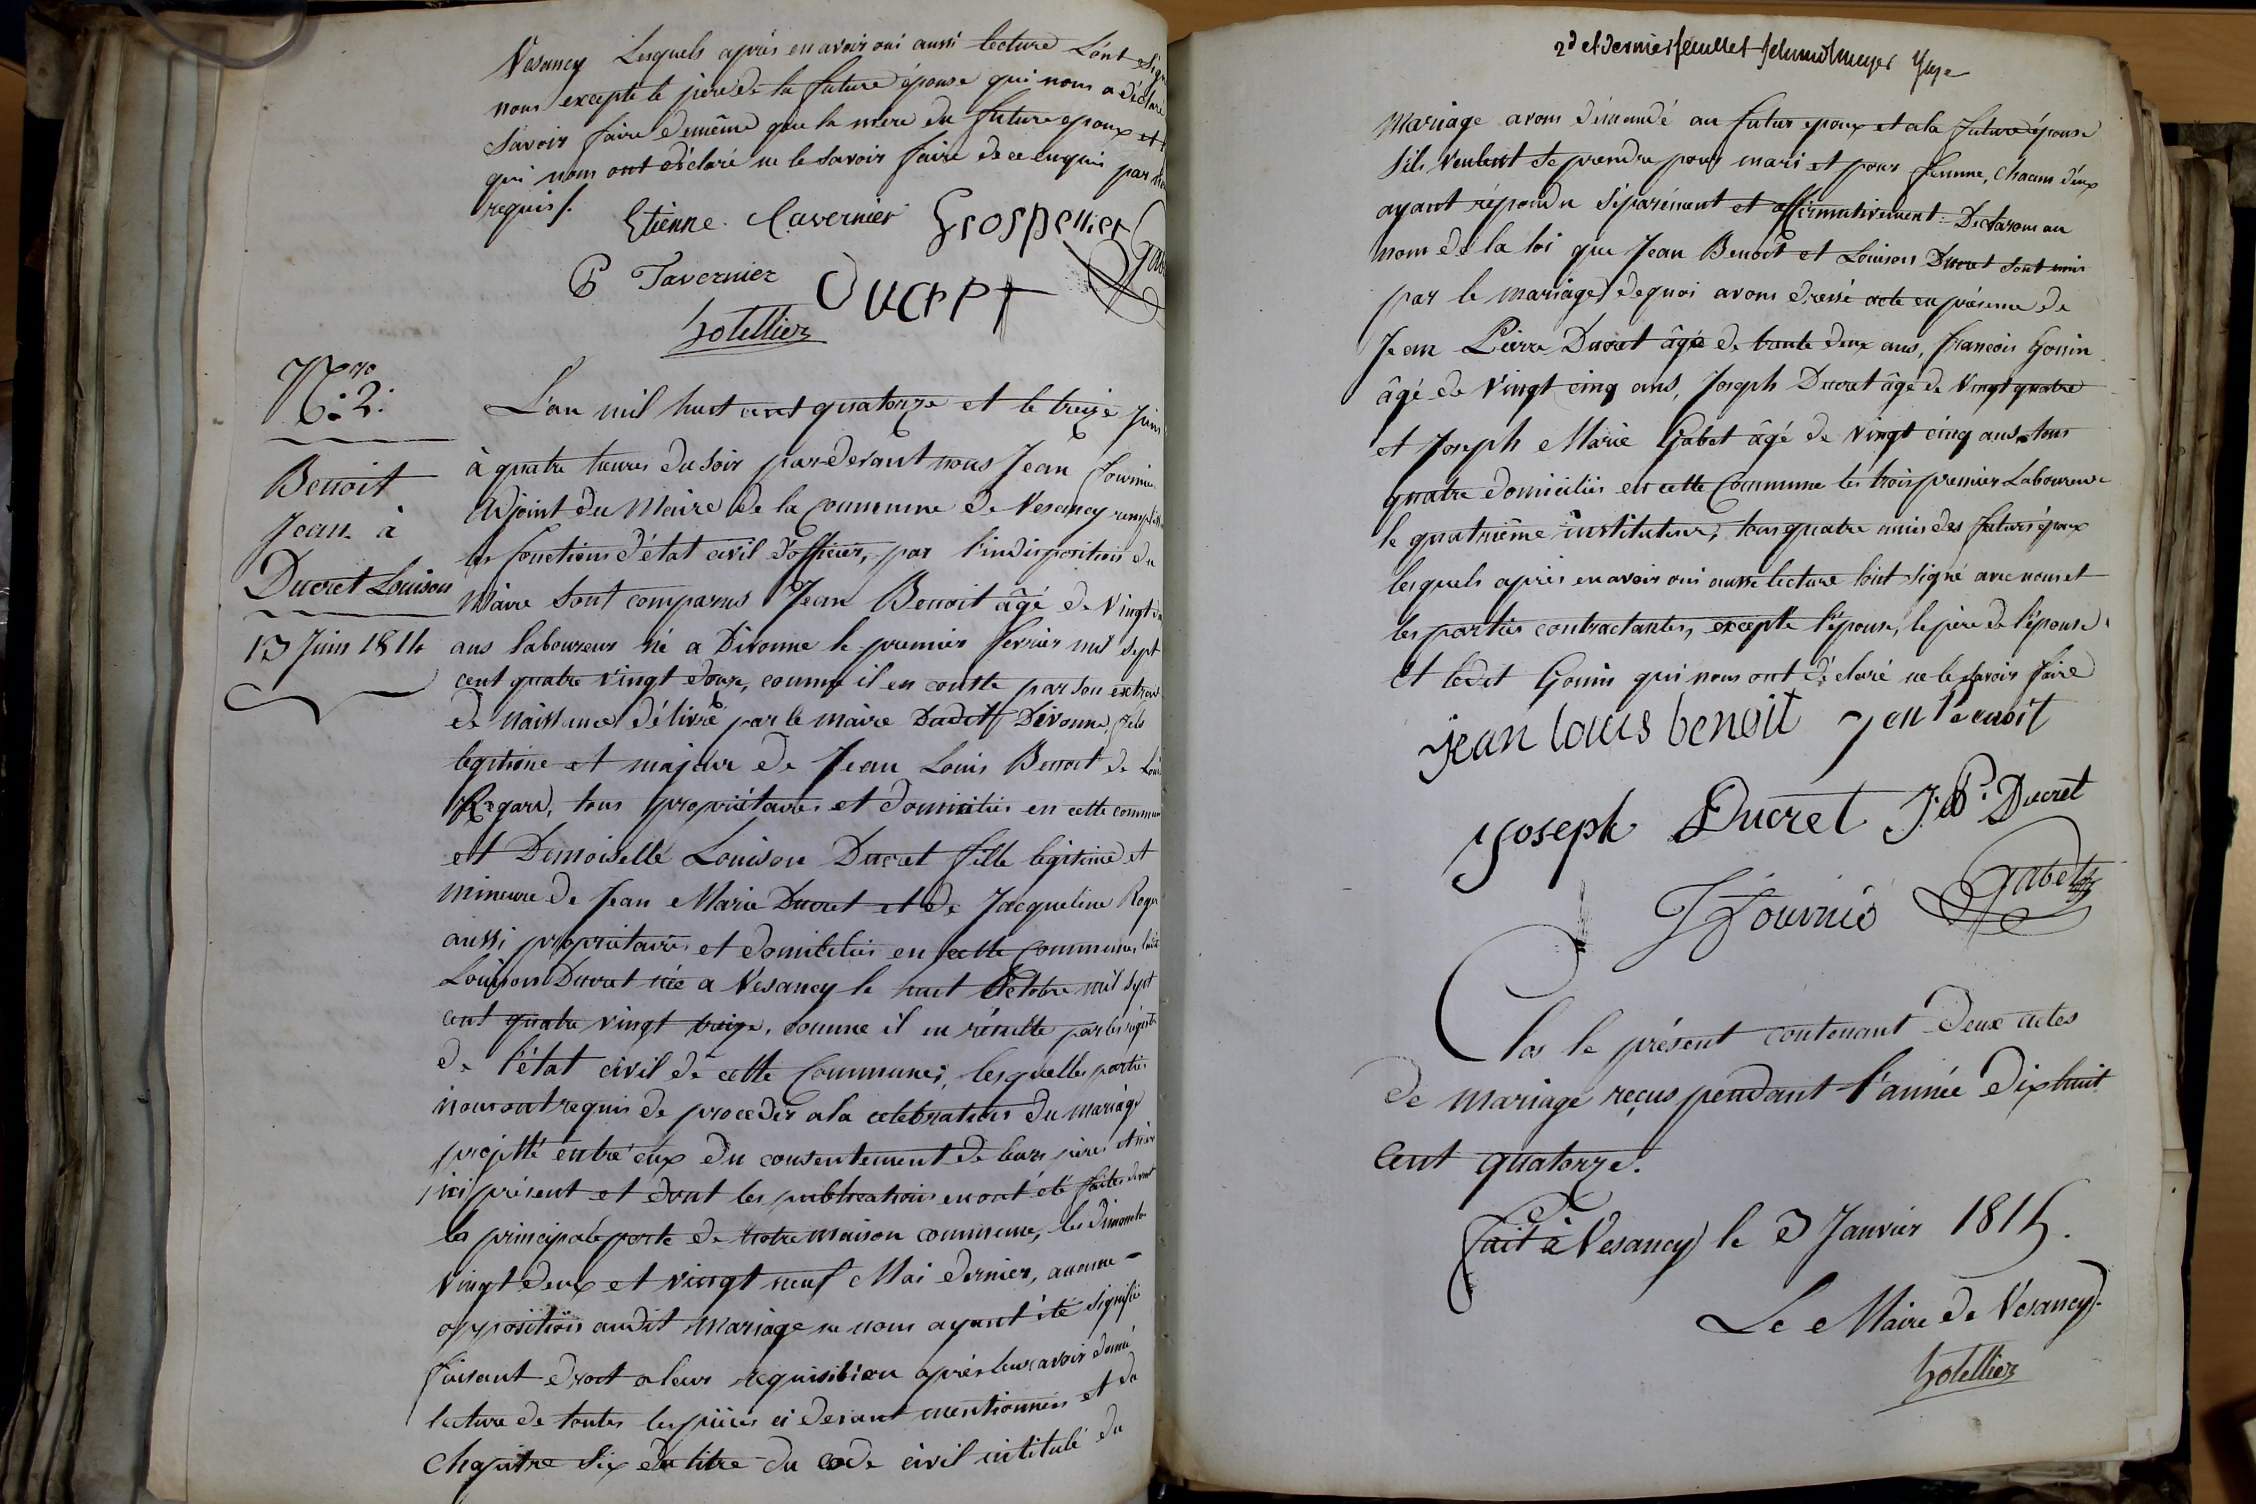 Vesancy Lesquels après en avoir oui aussi lecture L'ont signé
nous excepté le père de la future épouse qui nous a déclaré
savoir faire de même que la mère du future epoux et
qui nous ont déclaré ne le savoir faire de ce enquis par nous
requis/.
Etienne Tavernier Grospellier
P Tavernier Ducret
hotellier
Nro
2.
Benoit
Jean à
Ducret Louison
13 Juin 1814
L'an mil huit cent quatorze et le treize Juin
à quatre heures du soir par devant nous Jean Fournier
Adjoint du Maire de la Commune de Vesancy
les fonctions d'état civil d'officier, par l'indisposition du
Maire sont comparus Jean Benoit âgé de vingt
ans laboureur né a Divonne le premier fevrier mil sept
cent quatre vingt douze, comme il en conste par son extrait
de naissance délivré par le maire Dudit Divonne, fils
legitime et majeur de Jean Louis Benoit de
Regard, tous propriétaires et domiciliés en cette commune
et Demoiselle Louison Ducret fille legitime et
mineure de Jean Marie Ducret et de Jacqueline
aussi propriétaires et domiciliés en cette Commune,
Louison Ducret née a Vesancy le huit Octobre mil sept
cent quatre vingt treize, comme il en résulte par les régistres
de l'état civil de cette Commune, lesquelles parties
nous ont requis de proceder a la celebration du mariage
projetté entre eux du consentement de leurs pères et mères
ici présent et dont les publications en ont été faites devant
la principale porte de notre maison commune, les dimanches
vingt deux et vingt neuf Mai dernier, aucune
opposition audit mariage ne nous ayant été signifiée
faisant droit a leur requisition après leur avoir donné
lecture de toutes les pièces ci devant mentionnées et du
chapitre six du titre du code civil intitulé du
2d et dernier feuillet
Mariage avons démandé au futur epoux et a la future épouse
s'ils veulent se prendre pour mari et pour femme, chacun d'eux
ayant répondu séparément et affirmativement: Déclarons au
nom de la loi que Jean Benoit et Louison Ducret sont unis
par le mariage, de quoi avons dressé acte en présence de
Jean Pierre Ducret âgé de trente deux ans, françois Gonin
âgé de vingt cinq ans, Joseph Ducret âgé de vingt quatre
et Joseph Marie Gabet âgé de vingt cinq ans, tous
quatre domiciliés en cette Commune les trois premier Laboureurs
le quatrième instituteur, tous quatre amis des futurs époux
lesquels après en avoir oui aussi lecture l'ont signé avec nous et
les parties contractantes, excepté l'épouse, le père de l'épouse
et ledit Gonin qui nous ont déclaré ne le savoir faire
jean louis benoit jean benoit
Joseph Ducret J. P. Ducret
J Fournié Gabet
Clos le présent contenant deux actes
de mariage reçus pendant l'année dix huit
cent quatorze.
fait à Vesancy le 3 Janvier 1815.
Le Maire de Vesancy.
hotellier